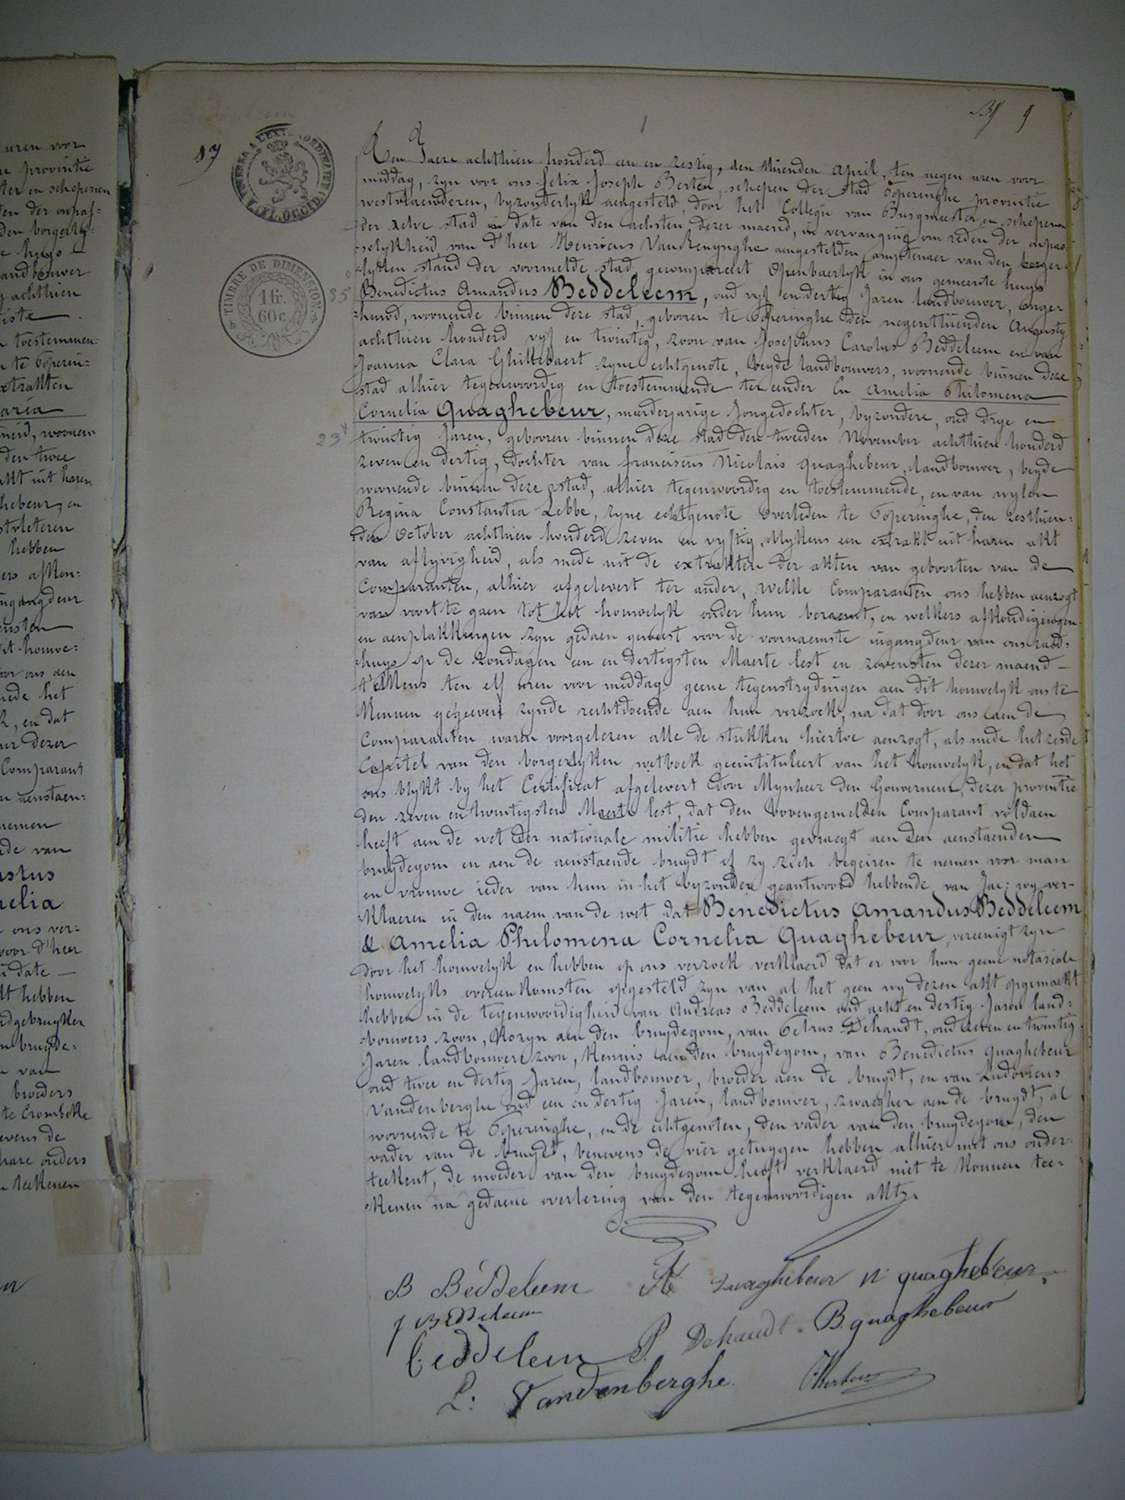 uren voor
provintie
ter en schepenen
der onpas-
den borgerly-
huys
landbouwer
achthien
iste
toestemmen-
te Poperin-
extrakten
aria
heid, woonen
den twee
uit haren
hebeur, en
hebben
ingangdeur
dit houwe-
voor ons aen
rede het
en dat
dezer
Comparant
aenstaen-
nemen
van
ustus
nelia
ons ver-
voor d'heer
date
hebben
brugde-
van
broeders
te Crombeke
evens de
hare ouders
teekenen
87
TIMBRE DE DIMENSION
1 fr.
60 c.
35
23
Den Jaere achthien honderd een en zestig, den thienden April, ten negen uren voor
middag, zyn voor ons Felix Joseph Berten, schepen der stad Poperinghe provintie
westvlaenderen, byzonderlyk aengesteld, door het Collegie van Burgmeester en schepenen
der zelve stad in date van den achsten dezer maend, in vervanging om reden der onpas-
selykheid, van d'heer Henricus Vandrenynghe aengestelden amptenaer van den borger-
lyken stand der voormelde stad, gecompareert openbaerlyk in ons gemeente huys
Benedictus Amandus Beddeleem, oud vyf en dertig Jaren landbouwer, onge-
huwd, woonende binnen deze stad, gebooren te Poperinghe den negenthienden Augusty
achthien honderd vyf en twintig, zoon van Josephus Carolus Beddeleem en van
Joanna Clara Ghillebaert zyne echtgenote, beyde landbouwers, woonende binnen deze
stad alhier tegenwoordig en toestemmende ter eender En Amelia Philomena
Cornelia Quaghebeur, minderjarige Jongedochter, byzondere, oud drye en
twintig Jaren, gebooren binnen deze stad den tweeden November achthien honderd
zeven en dertig, dochter van Franciscus Nicolais Quaghebeur, landbouwer, beyde
woonende binnen deze stad, alhier tegenwoordig en toestemmende, en van wylen
Regina Constantia Lebbe, zyne echtgenote overleden te Poperinghe, den zesthien-
den October achthien honderd zeven en vyftig, blykens een extrakt uit haren akt
van aflyvigheid, als mede uit de extrakten der akten van geboorten van de
Comparanten, alhier afgelevert ter ander, Welke Comparanten ons hebben aenzogt
van voorts te gaen tot het houwelyk onder hun beraemt, en welkers afkondigingen
en aenplakkingen zyn gedaen geweest voor de voornaemste ingangdeur van ons raed-
huys op de zondagen een en dertigsten Maerte lest en zevensten dezer maend
t'elkens ten elf uren voor middag geene tegenstrydingen aen dit houwelyk ons te
kennen gegeeven zynde rechtdoende aen hun verzoek, na dat door ons aen de
Comparanten waren voorgelezen alle de stukken hiertoe aenzogt, als mede het zesde
Capitel van den borgerlyken wetboek geïntituleert van het houwelyk, en dat het
ons blykt by het Certificat afgelevert door Mynheer den Gouverneur, dezer provintie
den zeven en twintigsten Maerte lest, dat den bovengemelden Comparant voldaen
heeft aen de wet der nationale militie hebben gevraegt aen den aenstaenden
bruydegom en aen de aenstaende bruydt of zy zich begeiren te nemen voor man
en vrouwe ieder van hun in het byzonder geantwoord hebbende van Jae: wy ver-
klaeren in den naem van de wet dat Benedictus Amandus Beddeleem
& Amelia Philomena Cornelia Quaghebeur, vereenigt zyn
door het houwelyk en hebben op ons verzoek verklaerd dat er voor hun geene notariale
houwelyks overeenkomsten opgesteld zyn van al het geen wy dezen akt opgemaekt
hebben in de tegenwoordigheid van Andreas Beddeleem oud acht en dertig Jaren land-
bouwers zoon, Kozyn aen den bruydegom, van Petrus Dehaudt, oud zeven en twintig
Jaren landbouwers zoon, Kennis aen den bruydegom, van Benedictus Quaghebeur
oud twee en dertig Jaren, landbouwer, broeder aen de bruydt, en van Ludovicus
Vandenberghe oud een en dertig Jaren, landbouwer, zwaegher aen de bruydt, al
woonende te Poperinghe, en de echtgenoten, den vader van den bruydegom, den
vader van de bruydt, benevens de vier getuygen hebben alhier met ons onder-
teekent, de moeder van den bruydegom heeft verklaerd niet te konnen tee-
kenen na gedaene overlezing van den tegenwoordigen akt.
B Beddeleem A Quaghebeur N quaghebeur
J Beddeleem
Beddeleem P. Dehaudt B quaghebeur
L: Vandenberghe